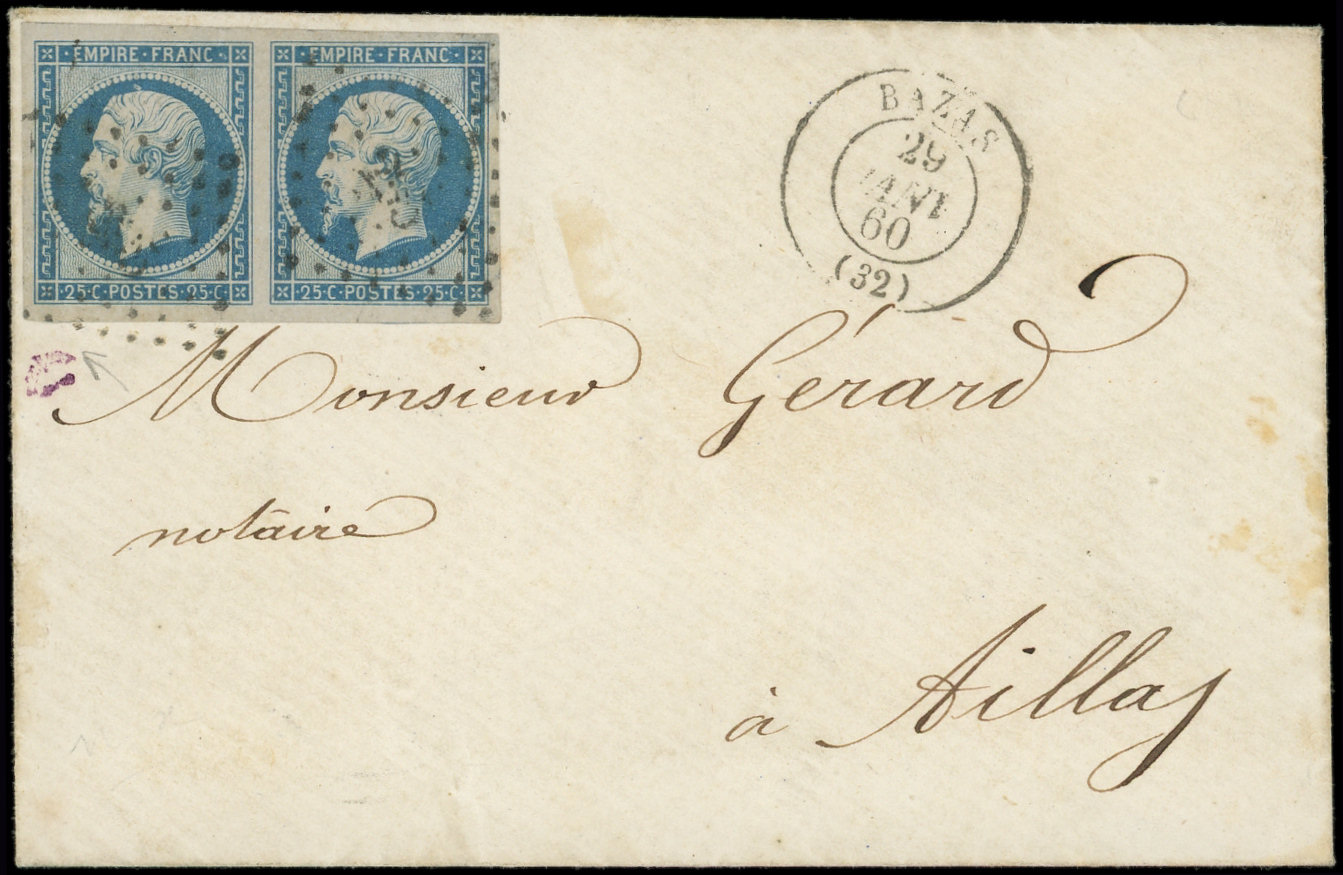 EMPIRE·FRANC· EMPIRE·FRANC·
·25·C·POSTES·25·C· ·25·C·POSTES·25·C·
BAZAS
29
JANV
60
(32)
Monsieur Gérard
notaire
à Aillas